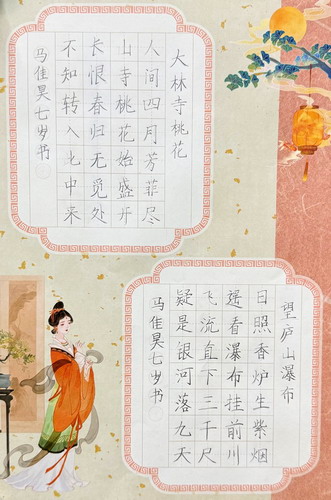 大林寺桃花
人间四月芳菲尽
山寺桃花始盛开
长恨春归无觅处
不知转入此中来
马佳昊七岁书
望庐山瀑布
日照香炉生紫烟
遥看瀑布挂前川
飞流直下三千尺
疑是银河落九天
马佳昊七岁书